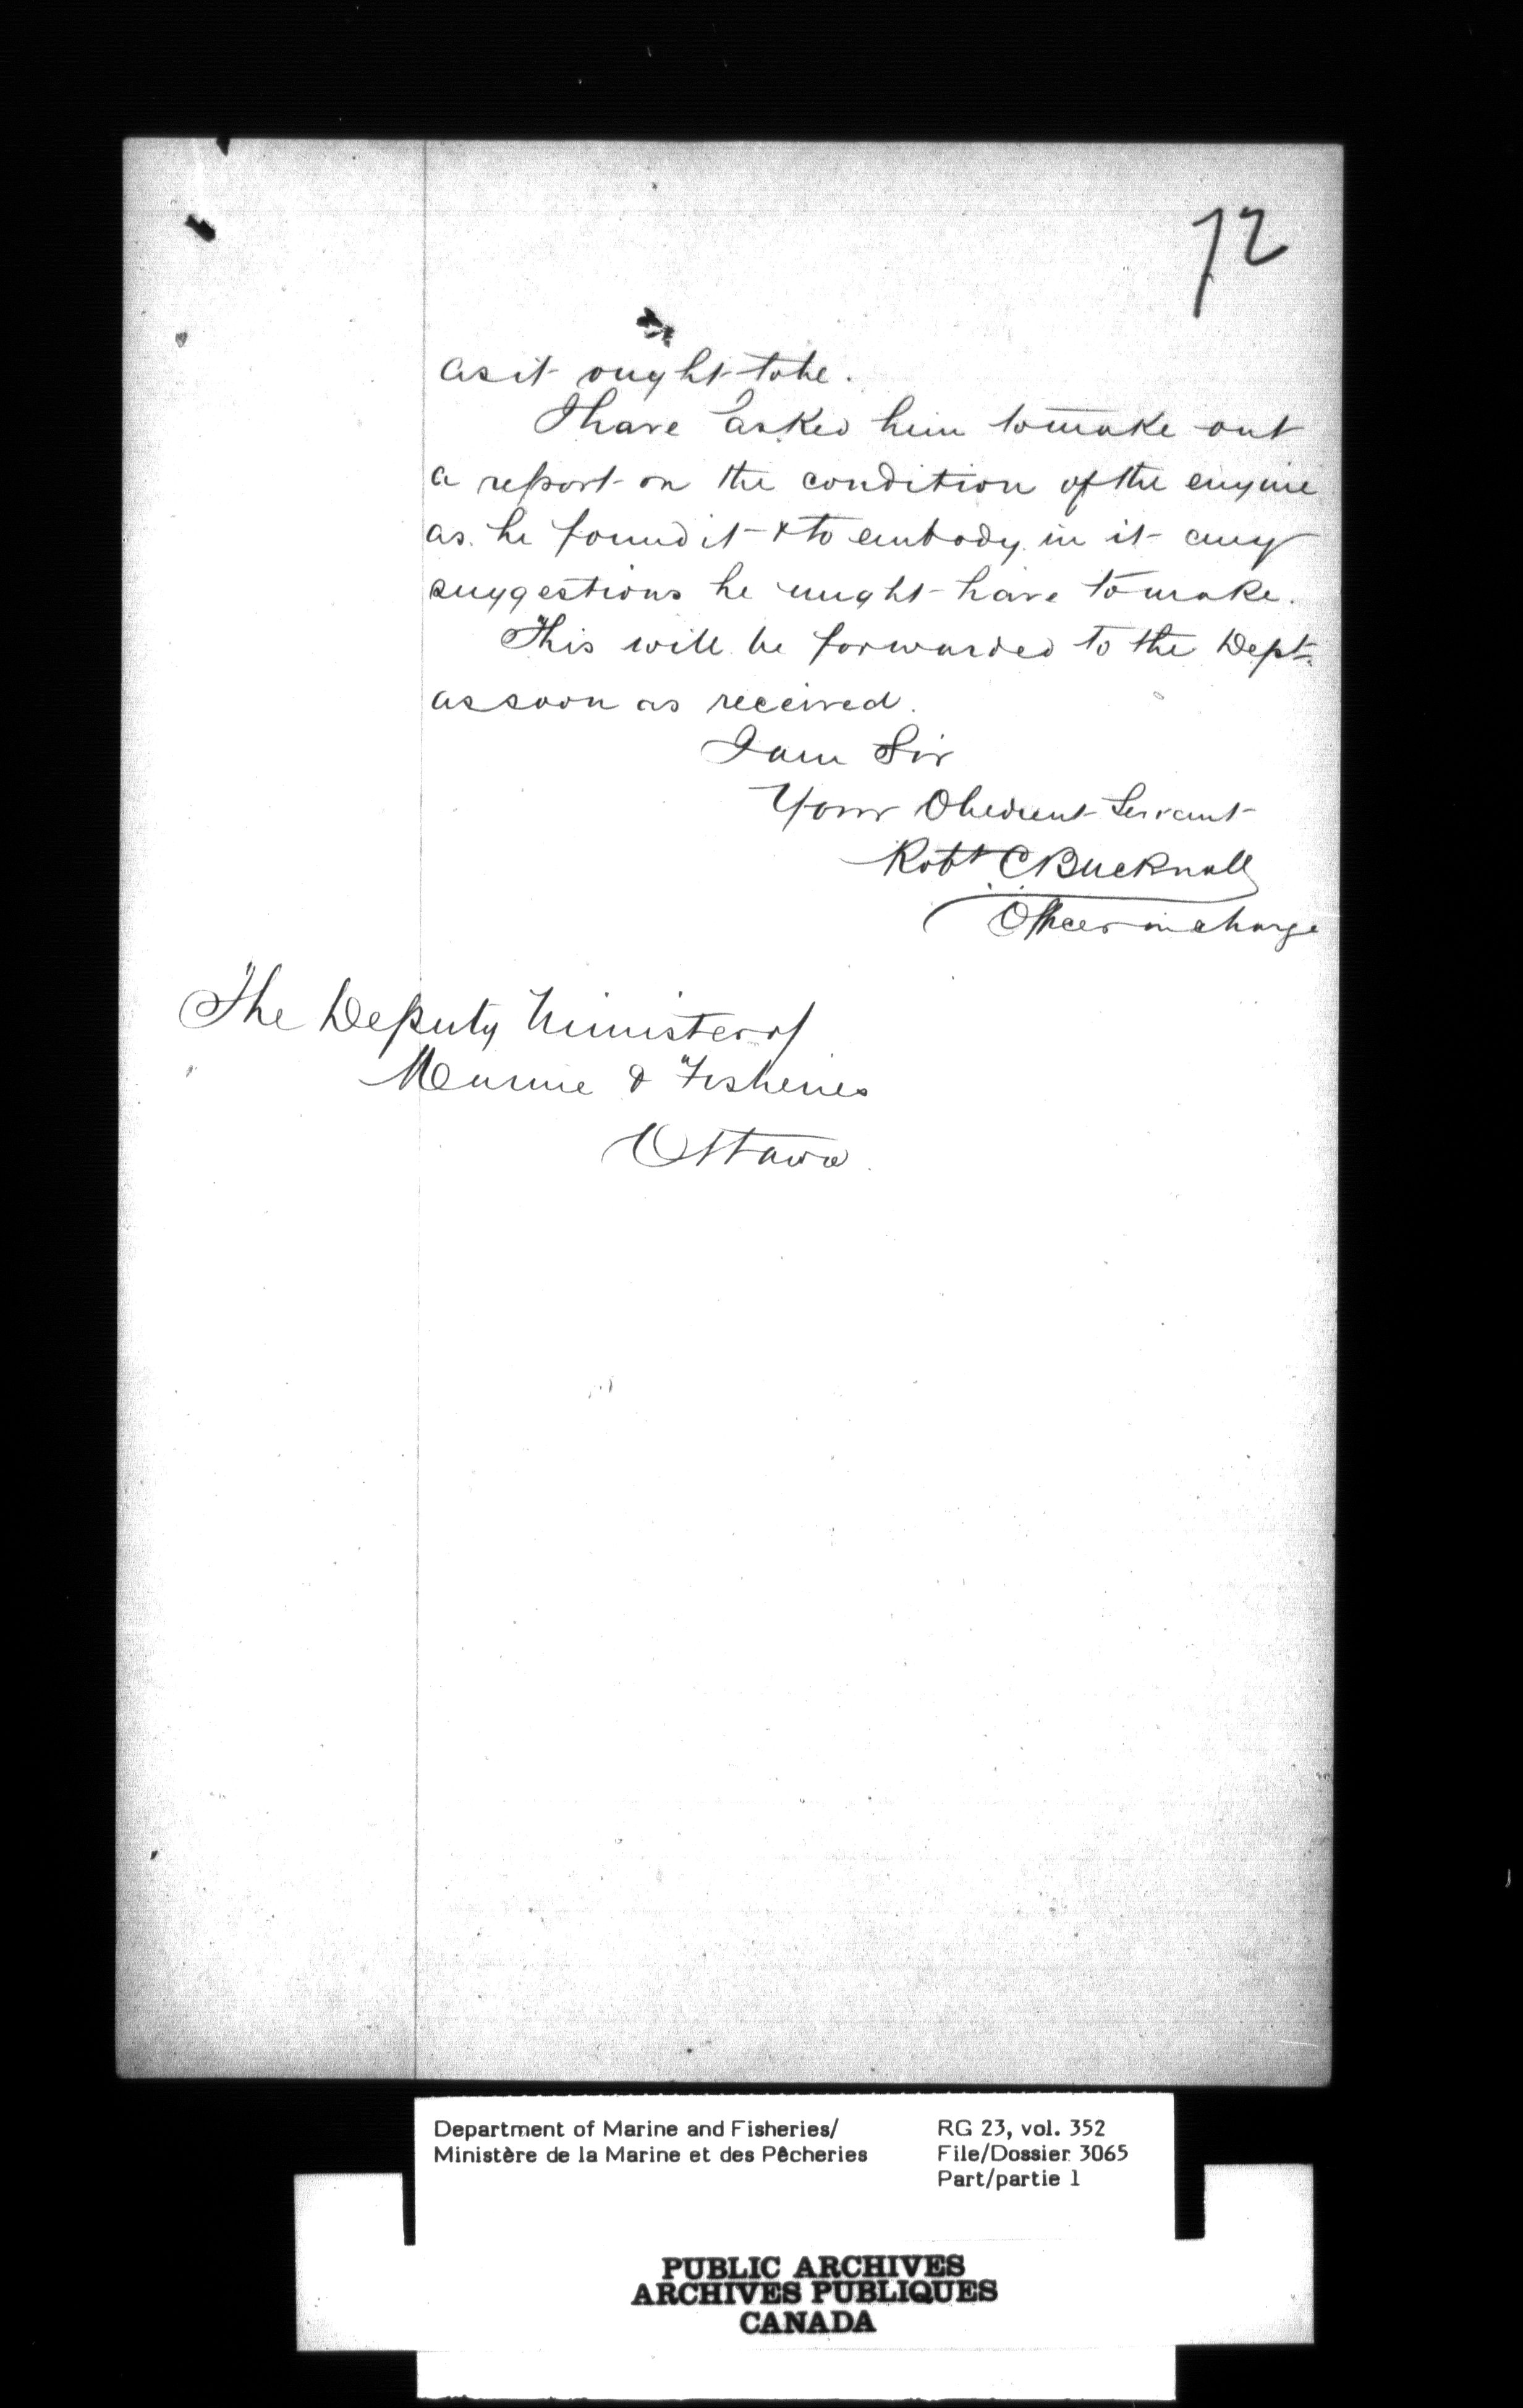 72
as it ought to be.
I have asked him to make out
a report on the condition of the engine
as he found it & to embody in it any
suggestions he might have to make.
This will be forwarded to the Dept.
as soon as received.
I am Sir
Your Obedient Servant
Robt C Bucknall
Officer in charge
The Deputy Minister of
Marine & Fisheries
Ottawa
Department of Marine and Fisheries/
Ministère de la Marine et des Pêcheries
RG 23, vol. 352
File/Dossier 3065
Part/partie 1
PUBLIC ARCHIVES
ARCHIVES PUBLIQUES
CANADA